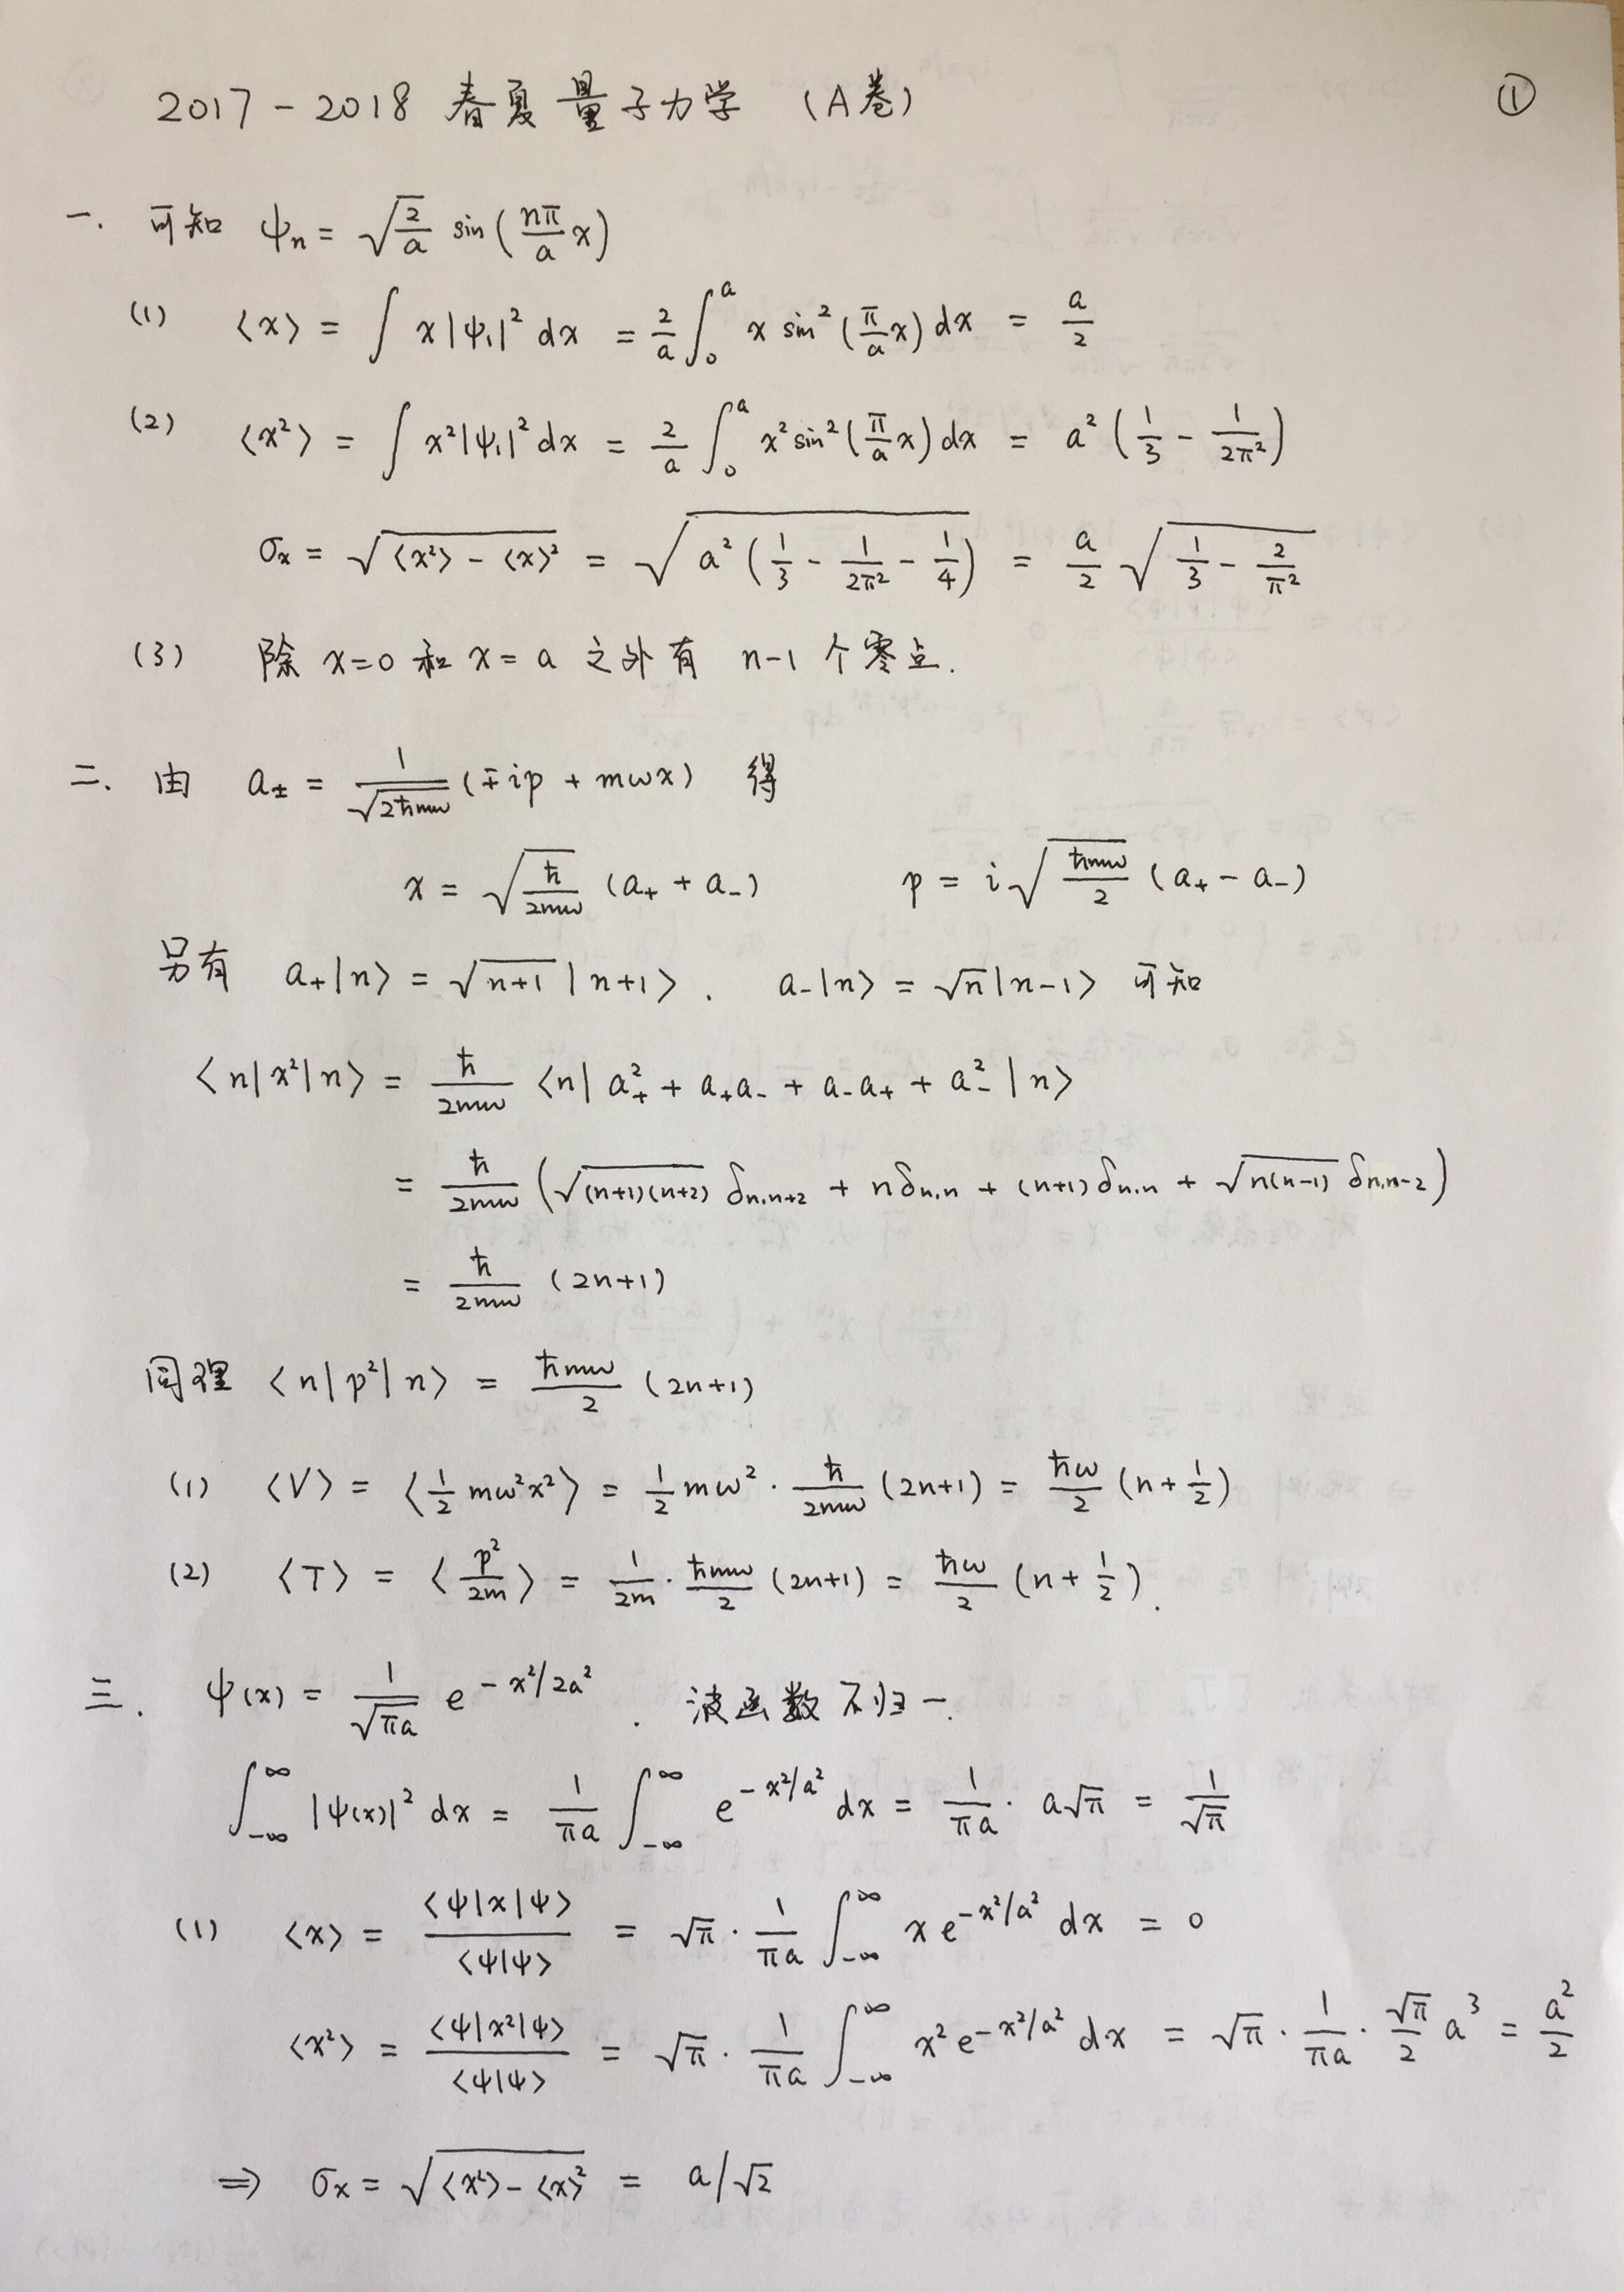 2017-2018 春夏 量子力学 (A卷) ①
一. 可知 ψₙ = √(2/a) sin(nπ/a x)
(1) ⟨x⟩ = ∫ x|ψ₁|² dx = 2/a ∫₀ᵃ x sin²(π/a x) dx = a/2
(2) ⟨x²⟩ = ∫ x²|ψ₁|² dx = 2/a ∫₀ᵃ x² sin²(π/a x) dx = a² (1/3 - 1/2π²)
σₓ = √(⟨x²⟩ - ⟨x⟩²) = √(a² (1/3 - 1/2π² - 1/4)) = a/2 √(1/3 - 2/π²)
(3) 除 x=0 和 x=a 之外有 n-1 个零点.
二. 由 a± = 1/√(2ħmω) (∓ip + mωx) 得
x = √(ħ/2mω) (a₊ + a₋) p = i√(ħmω/2) (a₊ - a₋)
另有 a₊|n⟩ = √(n+1) |n+1⟩. a₋|n⟩ = √n |n-1⟩ 可知
⟨n|x²|n⟩ = ħ/2mω ⟨n| a₊² + a₊a₋ + a₋a₊ + a₋² |n⟩
= ħ/2mω (√((n+1)(n+2)) δn,n+2 + nδn,n + (n+1)δn,n + √(n(n-1)) δn,n-2)
= ħ/2mω (2n+1)
同理 ⟨n|p²|n⟩ = ħmω/2 (2n+1)
(1) ⟨V⟩ = ⟨1/2 mω²x²⟩ = 1/2 mω² · ħ/2mω (2n+1) = ħω/2 (n+1/2)
(2) ⟨T⟩ = ⟨p²/2m⟩ = 1/2m · ħmω/2 (2n+1) = ħω/2 (n+1/2).
三. ψ(x) = 1/√(πa) e^(-x²/2a²). 波函数不归一.
∫₋∞^∞ |ψ(x)|² dx = 1/πa ∫₋∞^∞ e^(-x²/a²) dx = 1/πa · a√π = 1/√π
(1) ⟨x⟩ = ⟨ψ|x|ψ⟩/⟨ψ|ψ⟩ = √π · 1/πa ∫₋∞^∞ x e^(-x²/a²) dx = 0
⟨x²⟩ = ⟨ψ|x²|ψ⟩/⟨ψ|ψ⟩ = √π · 1/πa ∫₋∞^∞ x² e^(-x²/a²) dx = √π · 1/πa · √π/2 a³ = a²/2
⇒ σₓ = √(⟨x²⟩ - ⟨x⟩²) = a/√2